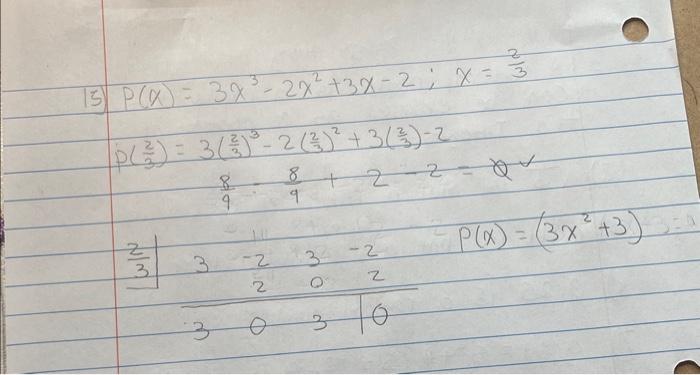 15) P(x) = 3x³ - 2x² + 3x - 2 ; x = 2/3
P(2/3) = 3(2/3)³ - 2(2/3)² + 3(2/3) - 2
8/9 - 8/9 + 2 - 2 = 0 ✓
2/3 | 3 -2 3 -2
P(x) = (3x² + 3)
2 0 2
3 0 3 | 0